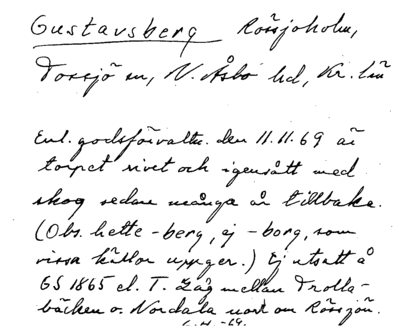 Gustavsberg Rössjoholm,
Tossjö sn, N. Åsbo hd, Kr. län
Enl. godsförvaltn. den 11.11.69 är
torpet rivet och igensått med
skog sedan många år tillbaka.
(Obs. hette -berg, ej -borg, som
vissa källor uppger.) Ej utsatt å
GS 1865 el. T. Låg mellan Trolla-
bäcken o. Nordala norr om Rössjön.
-69.